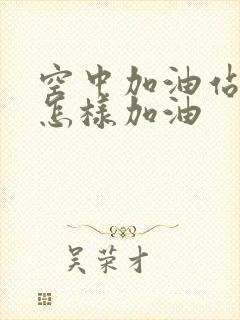 空中加油站
怎樣加油
吴荣才